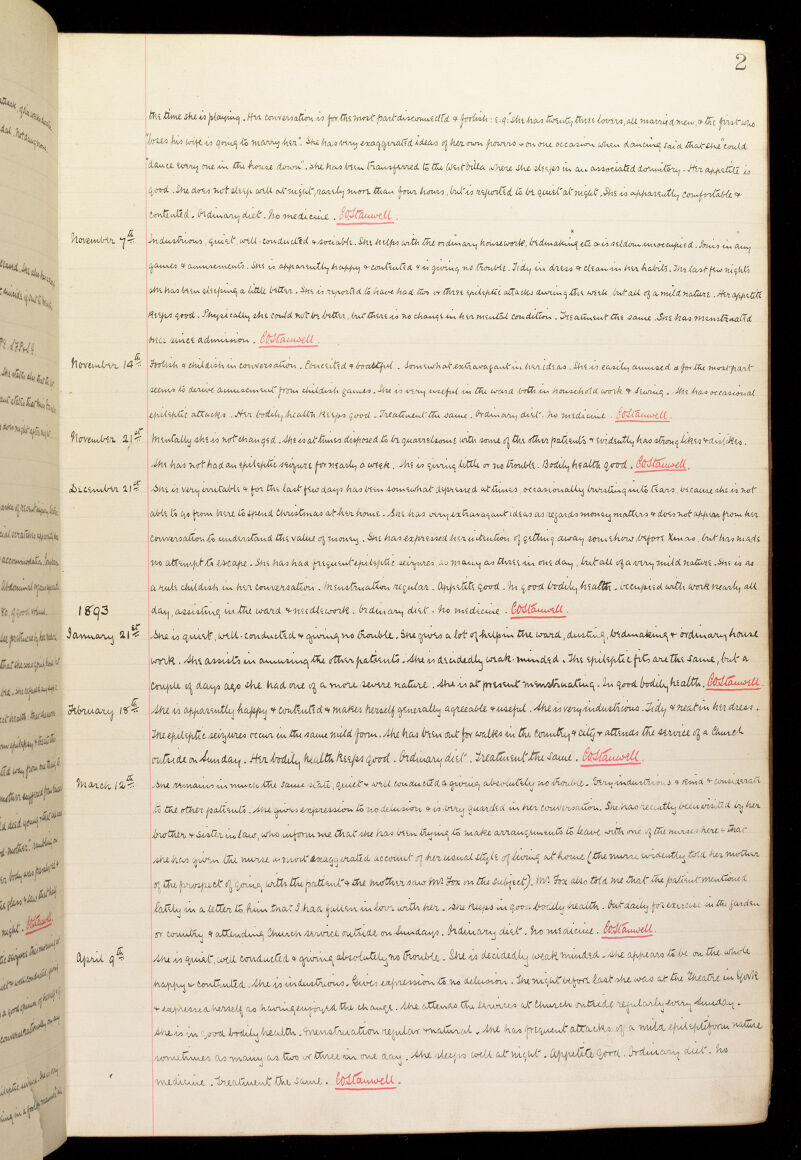 2
the time she is playing. Her conversation is for the most part disconnected & foolish: e.g: she has twenty three lovers, all married men, & the first who
"loses his wife is going to marry her". She has very exaggerated ideas of her own powers & on one occasion when dancing said that she "could
"dance every one in the house down". She has been transferred to the West Villa where she sleeps in an associated dormitory. Her appetite is
good. She does not sleep well at night, rarely more than four hours, but is reported to be quiet at night. She is apparently comfortable &
contented. Ordinary diet. No medicine.
November 7th Industrious, quiet, well-conducted & sociable. She helps with the ordinary housework, bedmaking etc & is seldom unoccupied. Joins in any
games & amusements. She is apparently happy & contented & is giving no trouble. Tidy in dress & clean in her habits. The last few nights
she has been sleeping a little better. She is reported to have had two or three epileptic attacks during the week, but all of a mild nature. Her appetite
keeps good. Physically she could not be better, but there is no change in her mental condition. Treatment the same. She has menstruated
once since admission.
November 14th Foolish & childish in conversation. Conceited & boastful. Somewhat extravagant in her ideas. She is easily amused & for the most part
seems to derive amusement from childish games. She is very useful in the ward both in household work & sewing. She has occasional
epileptic attacks. Her bodily health keeps good. Treatment the same. Ordinary diet. No medicine.
November 21st Mentally she is not changed. She is at times disposed to be quarrelsome with some of the other patients & evidently has strong likes & dislikes.
She has not had an epileptic seizure for nearly a week. She is giving little or no trouble. Bodily health good.
December 21st She is very irritable & for the last few days has been somewhat depressed at times, occasionally bursting into tears, because she is not
able to go from here to spend Christmas at her home. She has very extravagant ideas as regards money matters & does not appear from her
conversation to understand the value of money. She has expressed her intention of getting away somehow before Xmas, but has made
no attempt to escape. She has had frequent epileptic seizures, as many as three in one day, but all of a very mild nature. She is as
a rule childish in her conversation. Menstruation regular. Appetite good. In good bodily health. Occupied with work nearly all
1893 day, assisting in the ward & needlework. Ordinary diet. No medicine.
January 21st She is quiet, well-conducted & giving no trouble. She gives a lot of help in the ward, dusting, bedmaking & ordinary house
work. She assists in amusing the other patients. She is decidedly weak-minded. The epileptic fits are the same, but a
couple of days ago she had one of a more severe nature. She is at present menstruating. In good bodily health.
February 18th She is apparently happy & contented & makes herself generally agreeable & useful. She is very industrious. Tidy & neat in her dress.
The epileptic seizures occur in the same mild form. She has been out for walks in the country & city & attends the service of a Church
outside on Sunday. Her bodily health keeps good. Ordinary diet. Treatment the same.
March 12th She remains in much the same state, quiet & well conducted & giving absolutely no trouble. Very industrious & kind & considerate
to the other patients. She gives expression to no delusion & is very guarded in her conversation. She has recently been visited by her
brother & sister in law, who inform me that she has been trying to make arrangements to leave with one of the nurses here & that
she has given the nurse a most exaggerated account of her usual style of living at home (the nurse evidently told her mother
of the prospect of going with the patient & the mother saw Mr Fox on the subject). Mr Fox also told me that the patient mentioned
lately in a letter to him that I had fallen in love with her. She keeps in good bodily health. Out daily for exercise in the garden
or country & attending Church service outside on Sundays. Ordinary diet. No medicine.
April 9th She is quiet, well conducted & giving absolutely no trouble. She is decidedly weak minded. She appears to be on the whole
happy & contented. She is industrious. Gives expression to no delusion. The night before last she was at the Theatre in York
& expressed herself as having enjoyed the change. She attends the services at Church outside regularly every Sunday.
She is in good bodily health. Menstruation regular & natural. She has frequent attacks of a mild epileptiform nature
sometimes as many as two or three in one day. She sleeps well at night. Appetite good. Ordinary diet. No
medicine. Treatment the same.